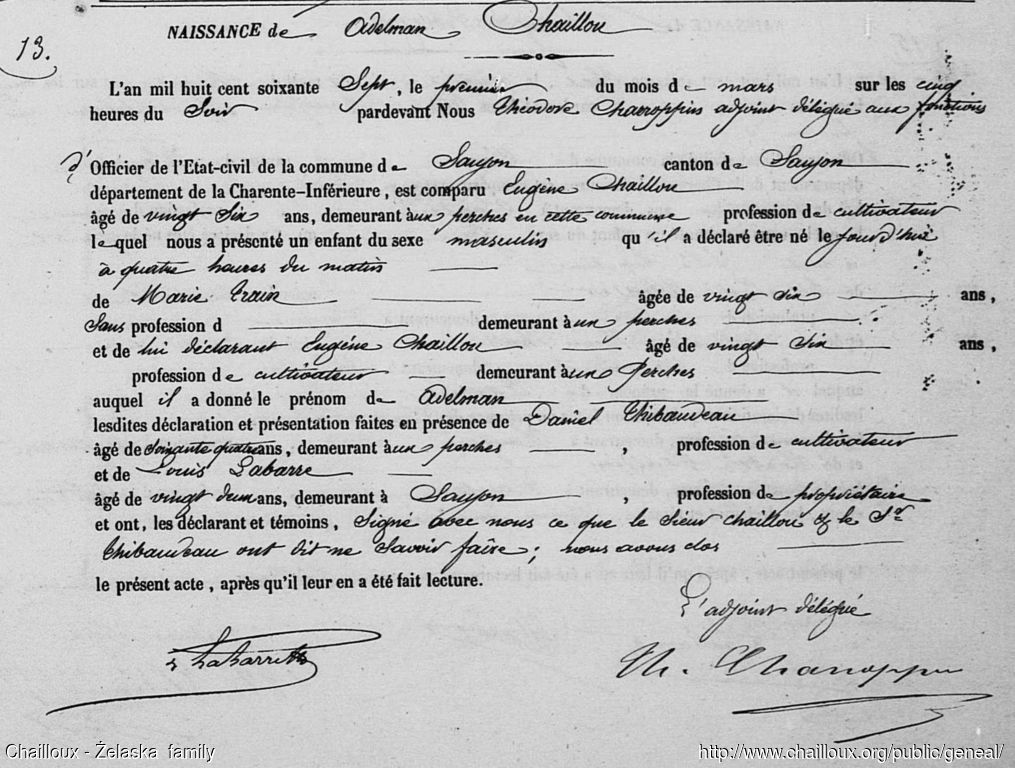 NAISSANCE de Adelman Chaillou
13.
L'an mil huit cent soixante Sept, le premier du mois de mars sur les cinq
heures du Soir pardevant Nous Théodore Charoppin adjoint délégué aux fonctions
d'Officier de l'Etat-civil de la commune de Saujon canton de Saujon
département de la Charente-Inférieure, est comparu Eugène Chaillou
âgé de vingt Six ans, demeurant à aux perches en cette commune profession de cultivateur
lequel nous a présenté un enfant du sexe masculin qu'il a déclaré être né le jourd'hui
à quatre heures du matin
de Marie âgée de vingt Six ans,
Sans profession d demeurant à aux perches
et de lui déclarant Eugène Chaillou âgé de vingt Six ans,
profession de cultivateur demeurant à aux Perches
auquel il a donné le prénom de Adelman
lesdites déclaration et présentation faites en présence de Daniel Thibaudeau
âgé de Soixante quatre ans, demeurant à aux perches, profession de cultivateur
et de Louis Labarre
âgé de vingt deux ans, demeurant à Saujon, profession de propriétaire
et ont, les déclarant et témoins, Signé avec nous ce que le Sieur chaillou & le Sr
Thibaudeau ont dit ne Savoir faire; nous avons clos
le présent acte, après qu'il leur en a été fait lecture.
L'adjoint délégué
Th. Charoppin
Chailloux - Želaska family
http://www.chailloux.org/public/geneal/